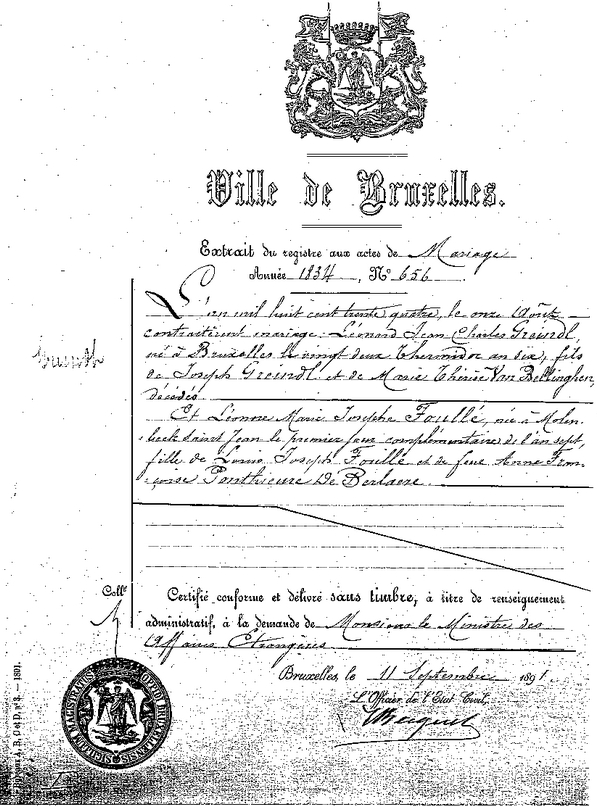 Ville de Bruxelles.
Extrait du registre aux actes de Mariage
Année 1834, N° 656.
L'an mil huit cent trente quatre, le onze Août
contractèrent mariage: Léonard Jean Charles Greindl,
né à Bruxelles le vingt deux thermidor an six, fils
de Joseph Greindl et de Marie Thérèse Van Bellinghen,
décédés.
Et Léonne Marie Josephe Foullé, née à Molen-
beek Saint Jean le premier jour complémentaire de l'an sept,
fille de Louis Joseph Foullé et de feue Anne Fran-
çoise Ponthieure De Berlaere.
Greindl
Coll.
Certifié conforme et délivré sans timbre, à titre de renseignement
administratif, à la demande de Monsieur le Ministre des
Affaires Etrangères
Bruxelles, le 11 Septembre 1891.
L'Officier de l'Etat Civil,
A, B, C et D, n° 3. — 1891.